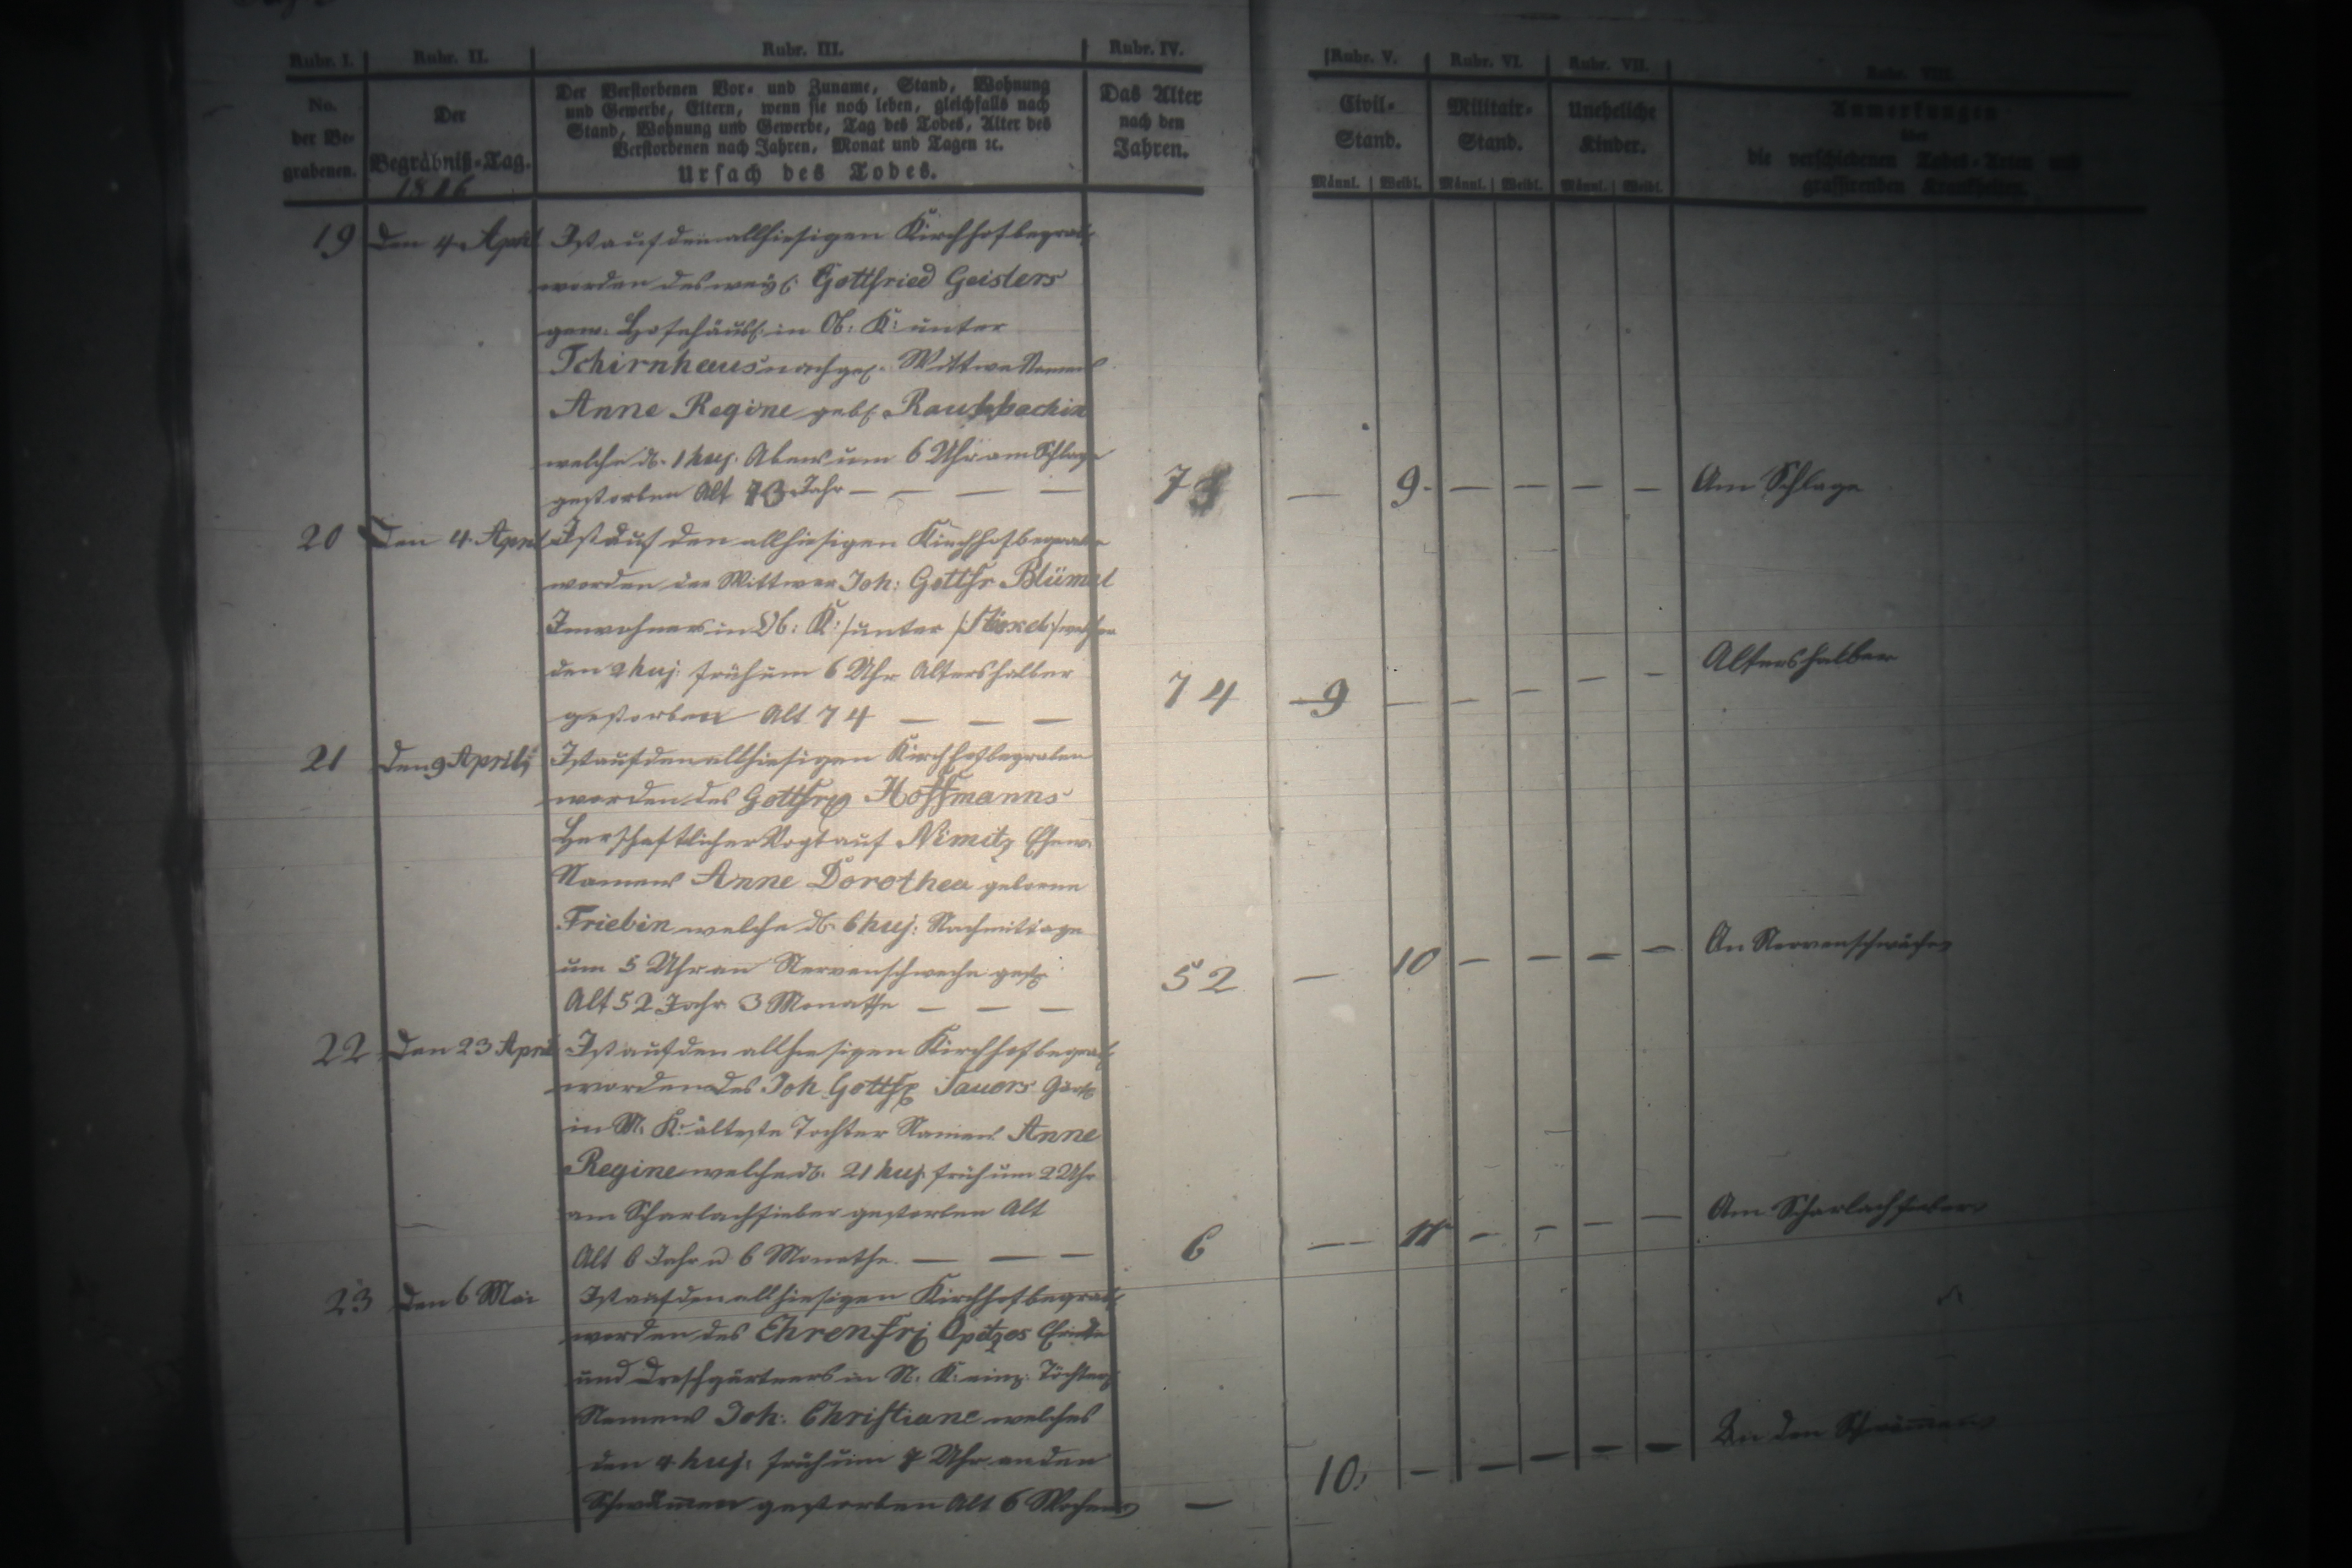 Rubr. I. Rubr. II. Rubr. III. Rubr. IV. Rubr. V. Rubr. VI. Rubr. VII. Rubr. VIII.
No. der Be-grabenen.
Der Begräbniß-Tag.
1816
Der Verstorbenen Vor- und Zuname, Stand, Wohnung
und Gewerbe, Eltern, wenn sie noch leben, gleichfalls nach
Stand, Wohnung und Gewerbe, Tag des Todes, Alter des
Verstorbenen nach Jahren, Monat und Tagen ꝛc.
Ursach des Todes.
Das Alter
nach den
Jahren.
Civil-
Stand.
Männl. Weibl.
Militair-
Stand.
Männl. Weibl.
Uneheliche
Kinder.
Männl. Weibl.
Anmerkungen
über
die verschiedenen Todes-Arten und
grassirenden Krankheiten.
19 den 4. April Ist auf den allhiesigen Kirchhof begrab
worden des weyl. Gottfried Geislers
gew. Hofehäusl. in Ob: K: unter
Tschirnhaus nachgel. Wittwe Namens
Anne Regine geb.
welche d. 1 huj. Abends um 6 Uhr am Schlage
gestorben Alt 73 Jahr — — — — 73 — 9. — — — — Am Schlage
20 Den 4. April Ist auf den allhiesigen Kirchhof begraben
worden der Wittwer Joh: Gottfr Blümel
Inwohner in Ob: K: unter welcher
den 2 huj: früh um 6 Uhr Altershalber
gestorben Alt 74 — — — 74 9 — — — — — Altershalber
21 den 9 April Ist auf den allhiesigen Kirchhof begraben
worden des Gottfr Hoffmanns
Herschaftlicher Vogt auf Nimitz Ehew.
Namens Anne Dorothea geborne
Friebin welche d. 6 huj: Nachmittage
um 5 Uhr an Nervenschweche gest.
Alt 52 Jahr 3 Monathe — — — 52 — 10 — — — — An Nervenschwäche
22 den 23 April Ist auf den allhiesigen Kirchhof begrab
worden des Joh Gottfr Sauers Gärt
in M. K: älteste Tochter Namens Anne
Regine welche d. 21 huj. früh um 2 Uhr
am Scharlachfieber gestorben Alt
Alt 6 Jahr u 6 Monathe. — — — 6 — 11 — — — — Am Scharlachfieber
23 den 6 Mai Ist auf den allhiesigen Kirchhof begrab
worden des Ehrenfr Opitzes
und Dreschgärtners in N. K: einz. Töchterl
Namens Joh: Christiane welches
den 4 huj: früh um Uhr an den
Schwämmen gestorben Alt 6 Wochen — 10 — — — — — An den Schwämmen